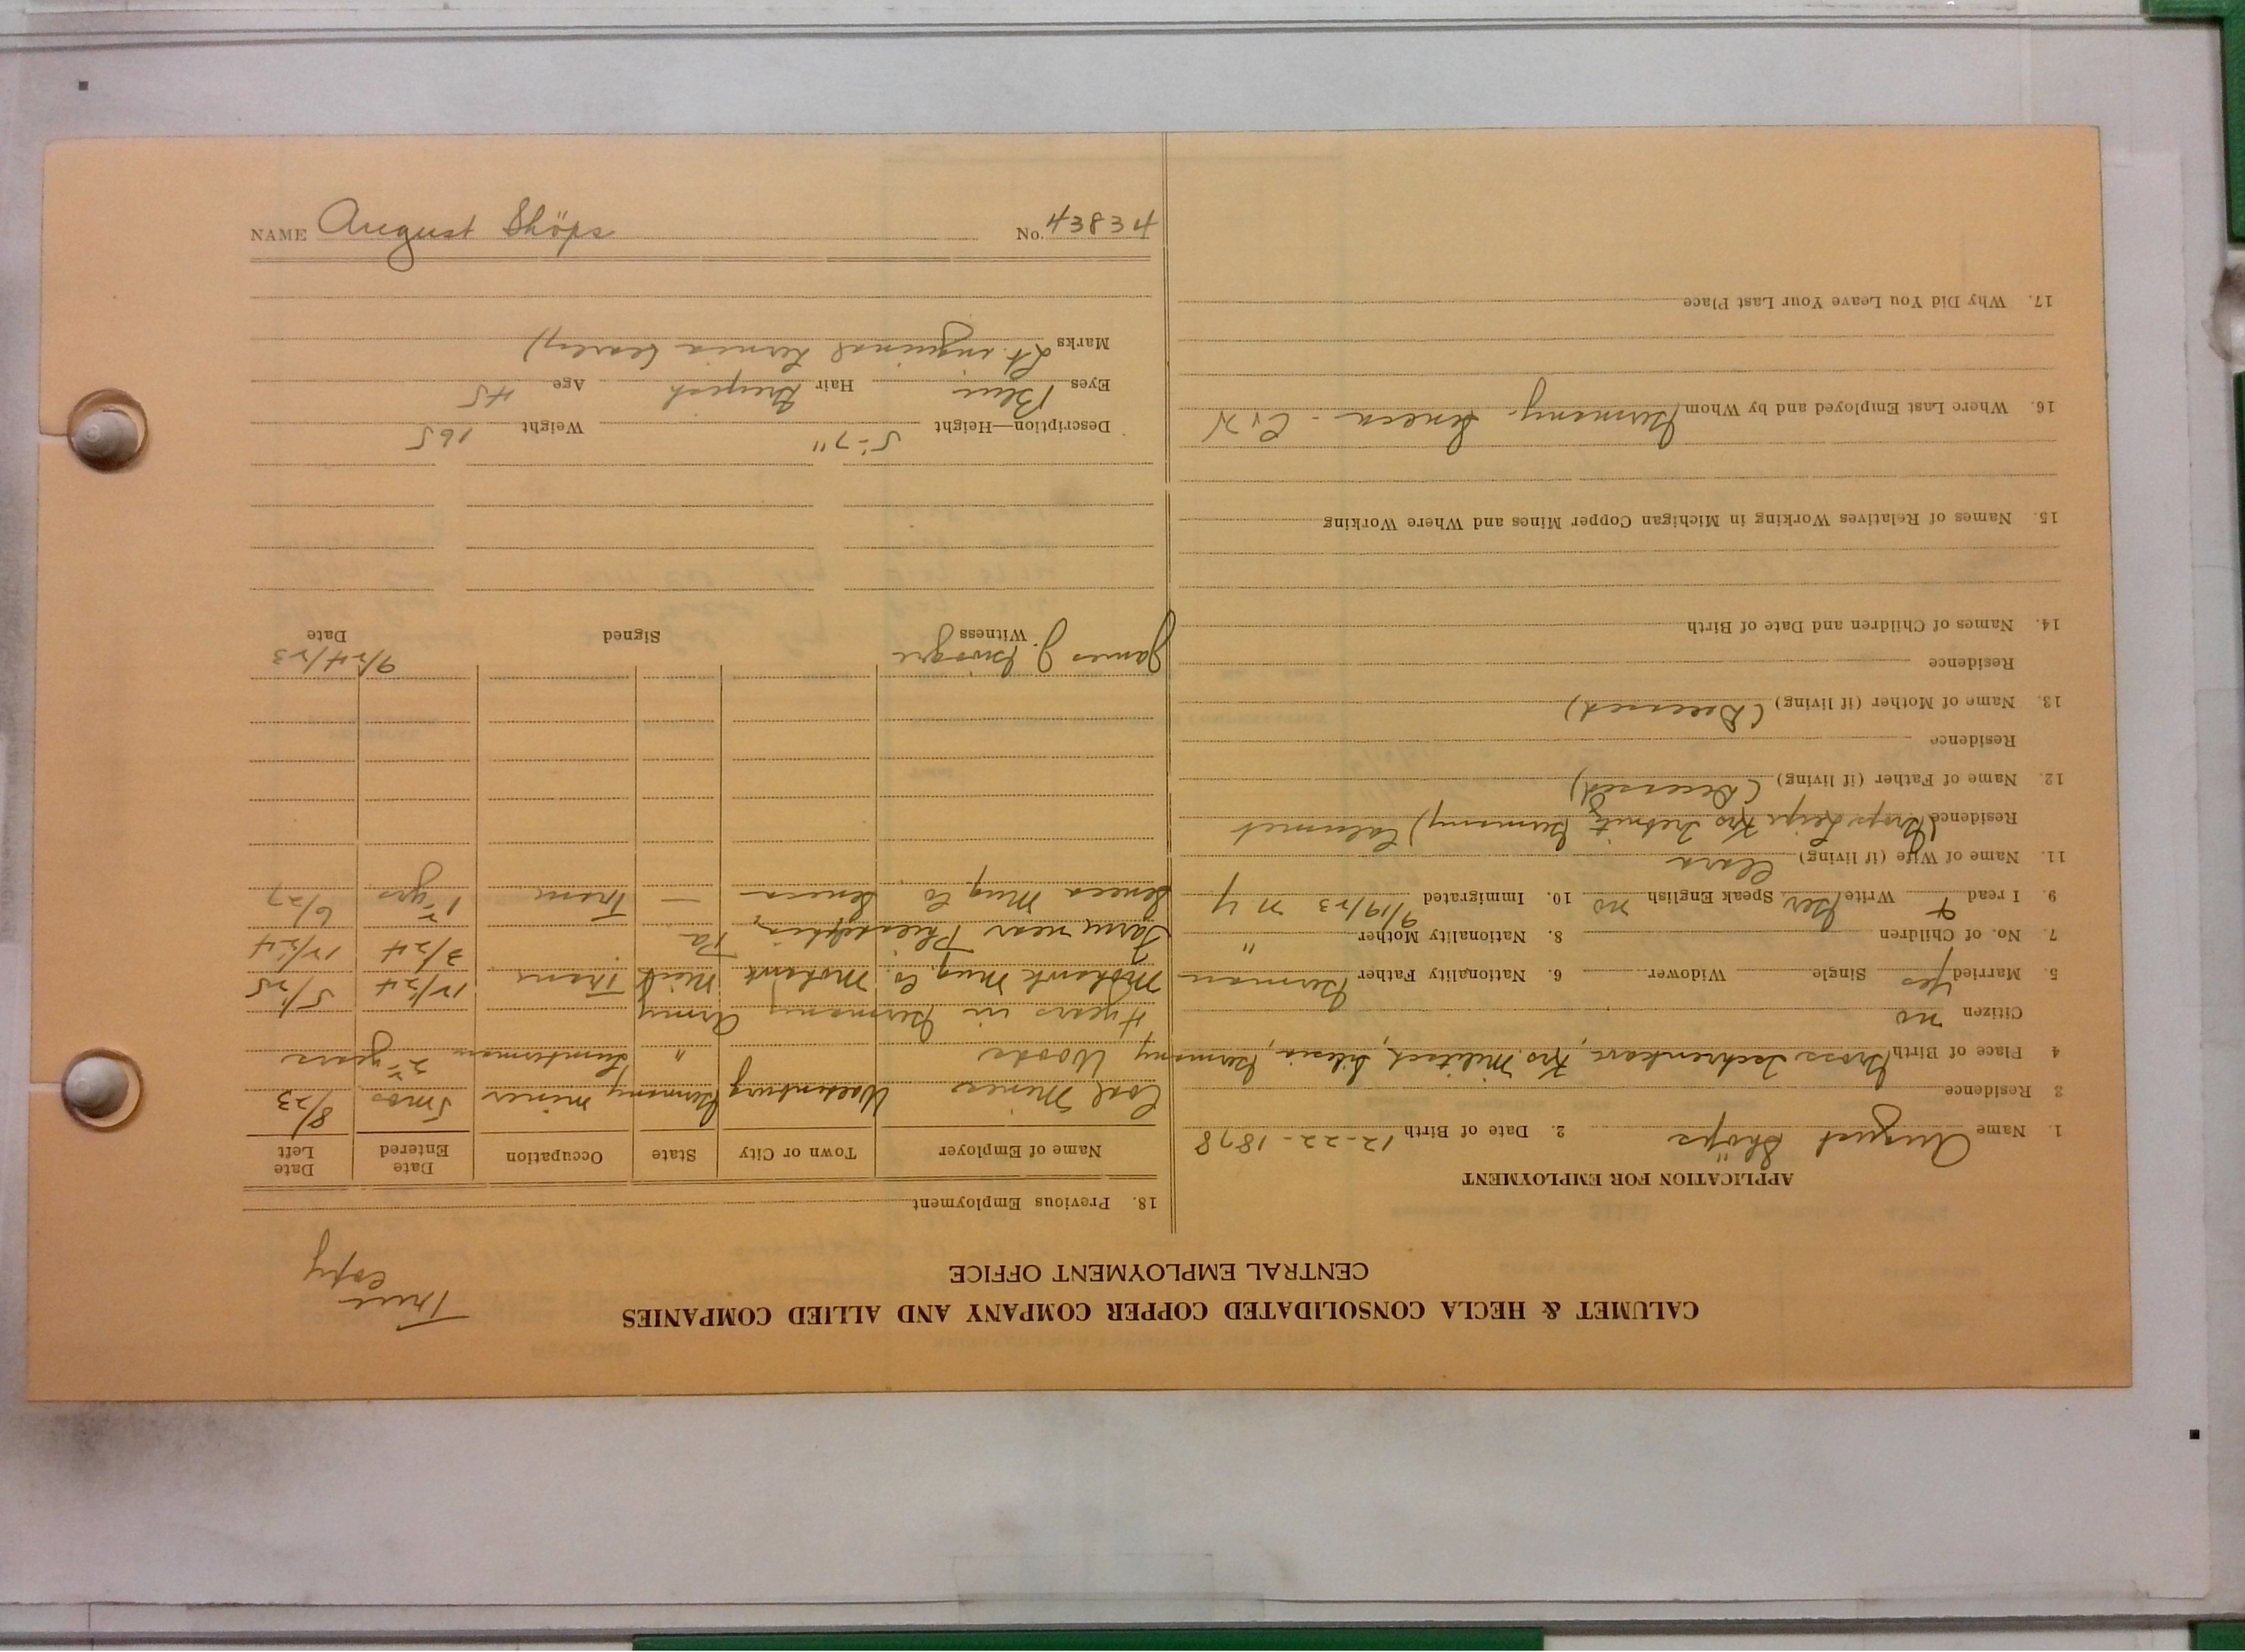 CALUMET & HECLA CONSOLIDATED COPPER COMPANY AND ALLIED COMPANIES
CENTRAL EMPLOYMENT OFFICE
True
Copy
APPLICATION FOR EMPLOYMENT
1. Name August Shöps 2. Date of Birth 12-22-1878
3 Residence
4 Place of Birth Gross Tschunkawe, Krs. Militsch, Silesia, Germany
Citizen no
5. Married yes Single Widower 6. Nationality Father German
7. No. of Children 8. Nationality Mother "
9. I read + Write Ger Speak English no 10. Immigrated 9/19/23 N Y
11. Name of Wife (if living) Clara
Residence Krs Trebnitz Germany) Calumet
12. Name of Father (if living) (Deceased)
Residence
13. Name of Mother (if living) (Deceased)
Residence
14. Names of Children and Date of Birth
15. Names of Relatives Working in Michigan Copper Mines and Where Working
16. Where Last Employed and by Whom Germany - Seneca -
17. Why Did You Leave Your Last Place
18. Previous Employment
Name of Employer Town or City State Occupation Date Entered Date Left
Coal Mines Waldenburg Germany miner 5 mos 8/23
Woods " Lumberman 2 years
4 years in Germany Army
Mohawk Mng. Co. Mohawk Mich Tram 12/24 5/25
Farm near Philadelphia, Pa 3/24 12/24
Seneca Mng Co Seneca — Tram 1 yrs 6/27
James J. 9/24/23
Witness Signed Date
Description—Height 5-7" Weight 165
Eyes Blue Hair Greyish Age 45
Marks Lt. inguinal hernia
NAME August Shöps No. 43834